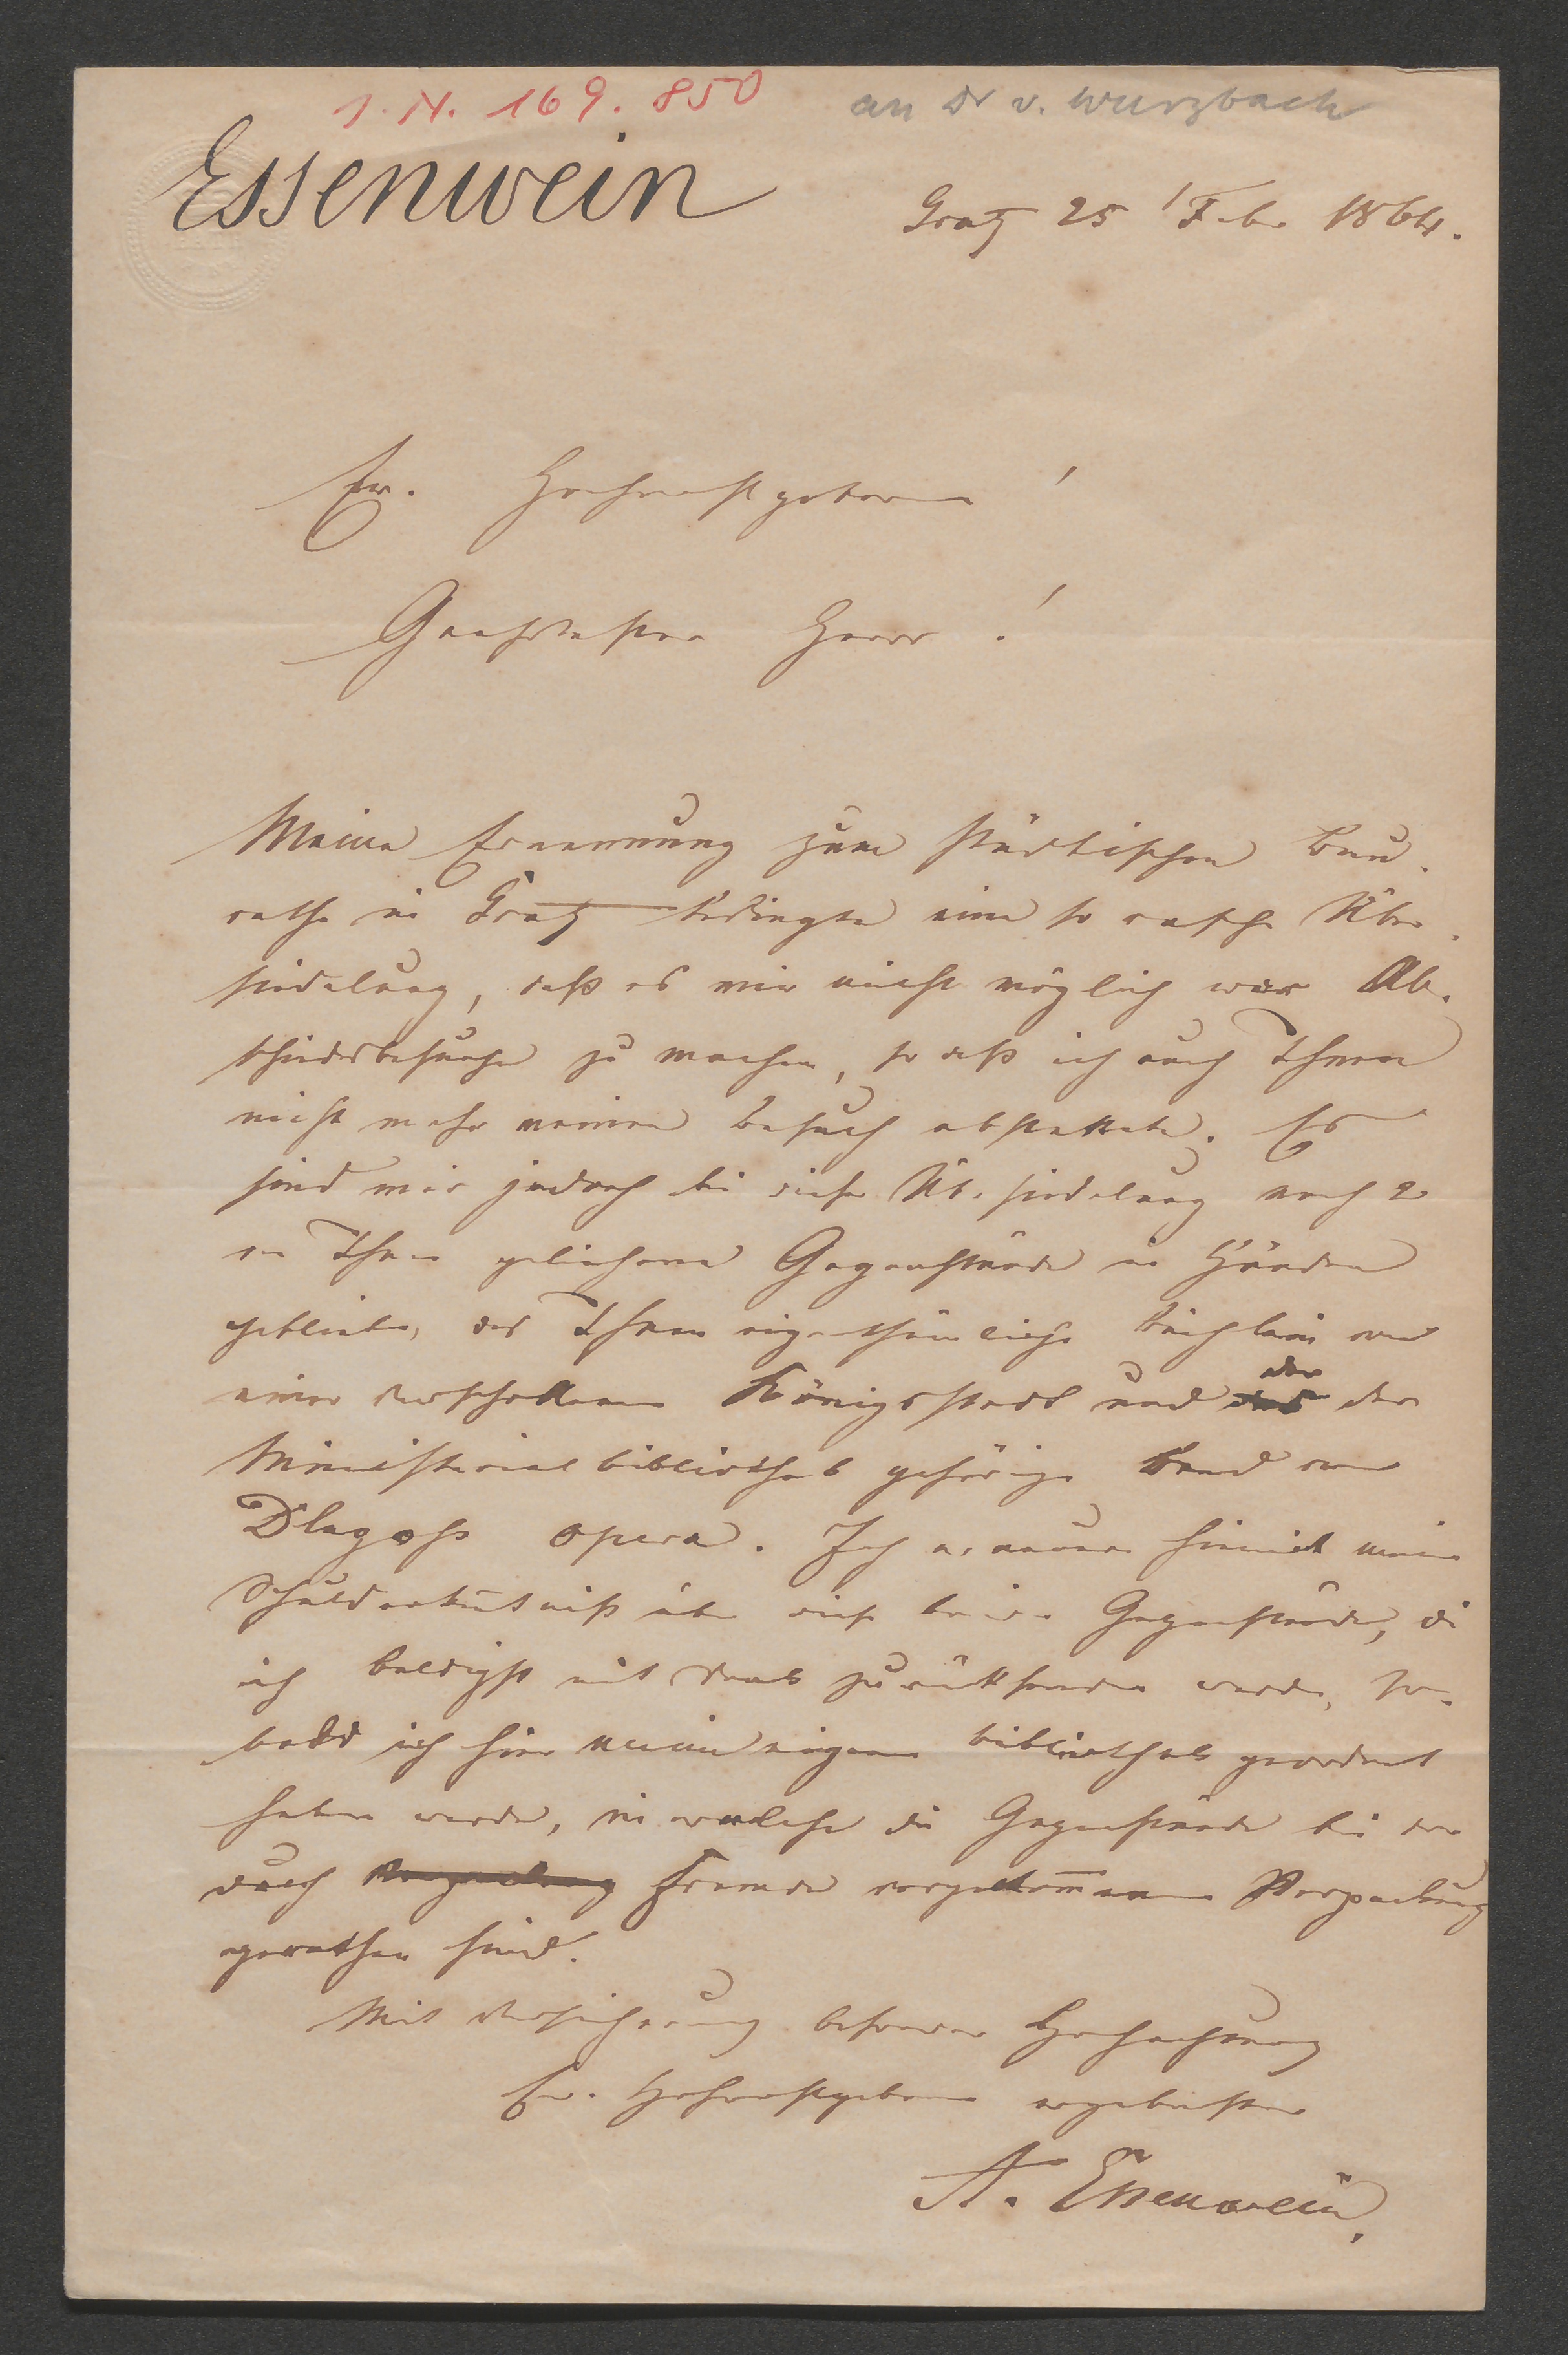 I. N. 169.850
an Dr v. Wurzbach
Essenwein
Gratz 25 / Feb. 1864.
Ew. Hochwohlgeboren!
Geehrtester Herr!
Meine Ernennung zum städtischen Bau-
rathe in Gratz bedingte eine so rasche Über-
siedelung, daß es mir nicht möglich war Ab-
schiedsbesuche zu machen, so daß ich auch Ihnen
nicht mehr meinen Besuch abstattete. Es
sind mir jedoch bei dieser Übersiedelung noch 2
von Ihnen geliehene Gegenstände in Händen
geblieben, das Ihnen eigenthümliche Büchlein von
einer verschollenen Königsstadt und das der der
Ministerialbibliothek gehörige Band von
Dlugosz opera. Ich erneuere hiemit meine
Schulderkenntniß über diese beiden Gegenstände, die
ich baldigst mit Dank zurücksenden werde, so-
bald ich hier meine eigene Bibliothek geordnet
haben werde, in welche die Gegenstände bei der
durch Fremde vorgenommenen Verpackung
gerathen sind.
Mit Versicherung besonderer Hochachtung
Ew. Hochwohlgeboren ergebenster
A. Essenwein.